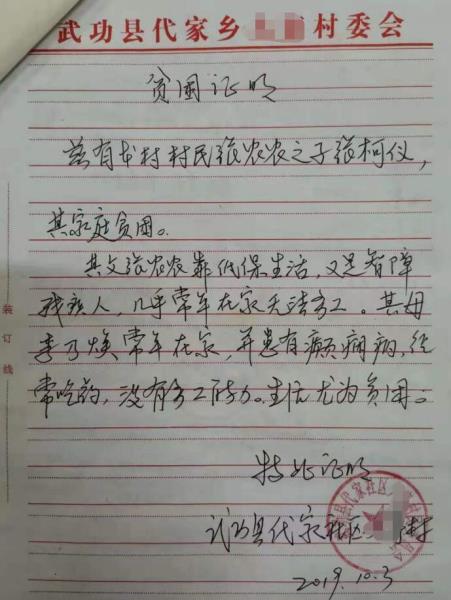 武功县代家乡 村委会
贫困证明
兹有本村村民张农农之子张柯仪,
其家庭贫困。
其父张农农靠低保生活,又是智障
残疾人,几乎常年在家无法务工。其母
李乃焕常年在家,并患有癫痫病,经
常吃药,没有务工能力。生活尤为贫困。
特此证明
武功县代家社区 村
2019.10.3
装订线